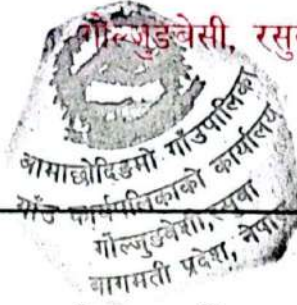 गोल्जुङबेसी, रसु
आमाछोदिङमो गाउँपालिका
गाउँ कार्यपालिकाको कार्यालय
गोल्जुङबेशी, रसुवा
बागमती प्रदेश, नेपाल